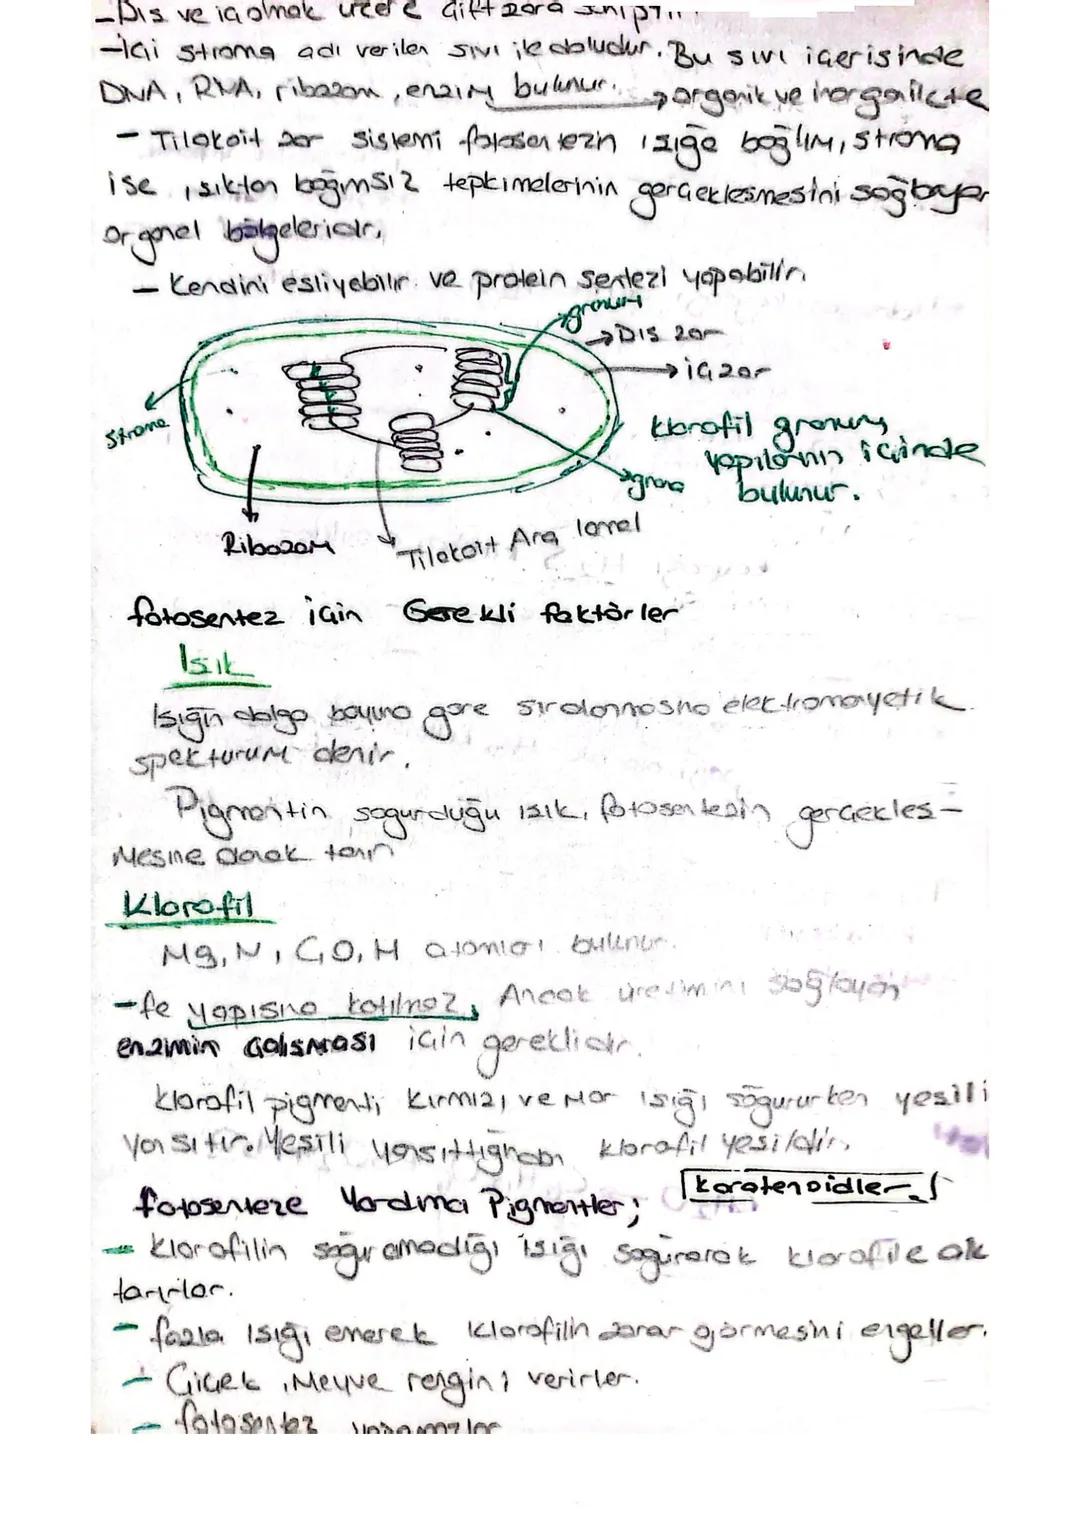 -Dış ve iç olmak üzere çift zara sahiptir.
-İçi stroma adı verilen sıvı ile doludur. Bu sıvı içerisinde
DNA, RNA, ribozom, enzim bulunur. → organik ve inorganikte
- Tilakoit zar sistemi fotosentezin ışığa bağlım, stroma
ise ışıktan bağımsız tepkimelerinin gerçekleşmesini sağlayan
organel bölgeleridir,
- Kendini eşliyebilir ve protein sentezi yapabilir.
granum
→Dış zar
→iç zar
Stroma
klorofil granum
yapılarının içinde
bulunur.
grana
Ribozom
Tilakoit Ara lamel
fotosentez için Gerekli faktörler
Işık
Işığın dalga boyuna göre sıralanmasına elektromayetik
spekturum denir.
Pigmentin soğurduğu ışık, fotosentezin gerçekleş-
mesine olarak tanır
Klorofil
Mg, N, C, O, H atomları bulunur.
-fe yapısına katılmaz, Ancak üretimini sağlayan
enzimin çalışması için gereklidir.
Klorofil pigmenti, kırmızı ve mor ışığı soğururken yeşili
yansıtır. Yeşili yansıttığından klorofil yeşildir.
fotosenteze Yardımcı Pigmentler; karotenoidler
- Klorofilin soğuramadığı ışığı soğurarak klorofile ak
tarırlar.
- fazla ışığı emerek klorofilin zarar görmesini engeller.
- Çiçek, Meyve rengini verirler.
- fotosentez yapamazlar